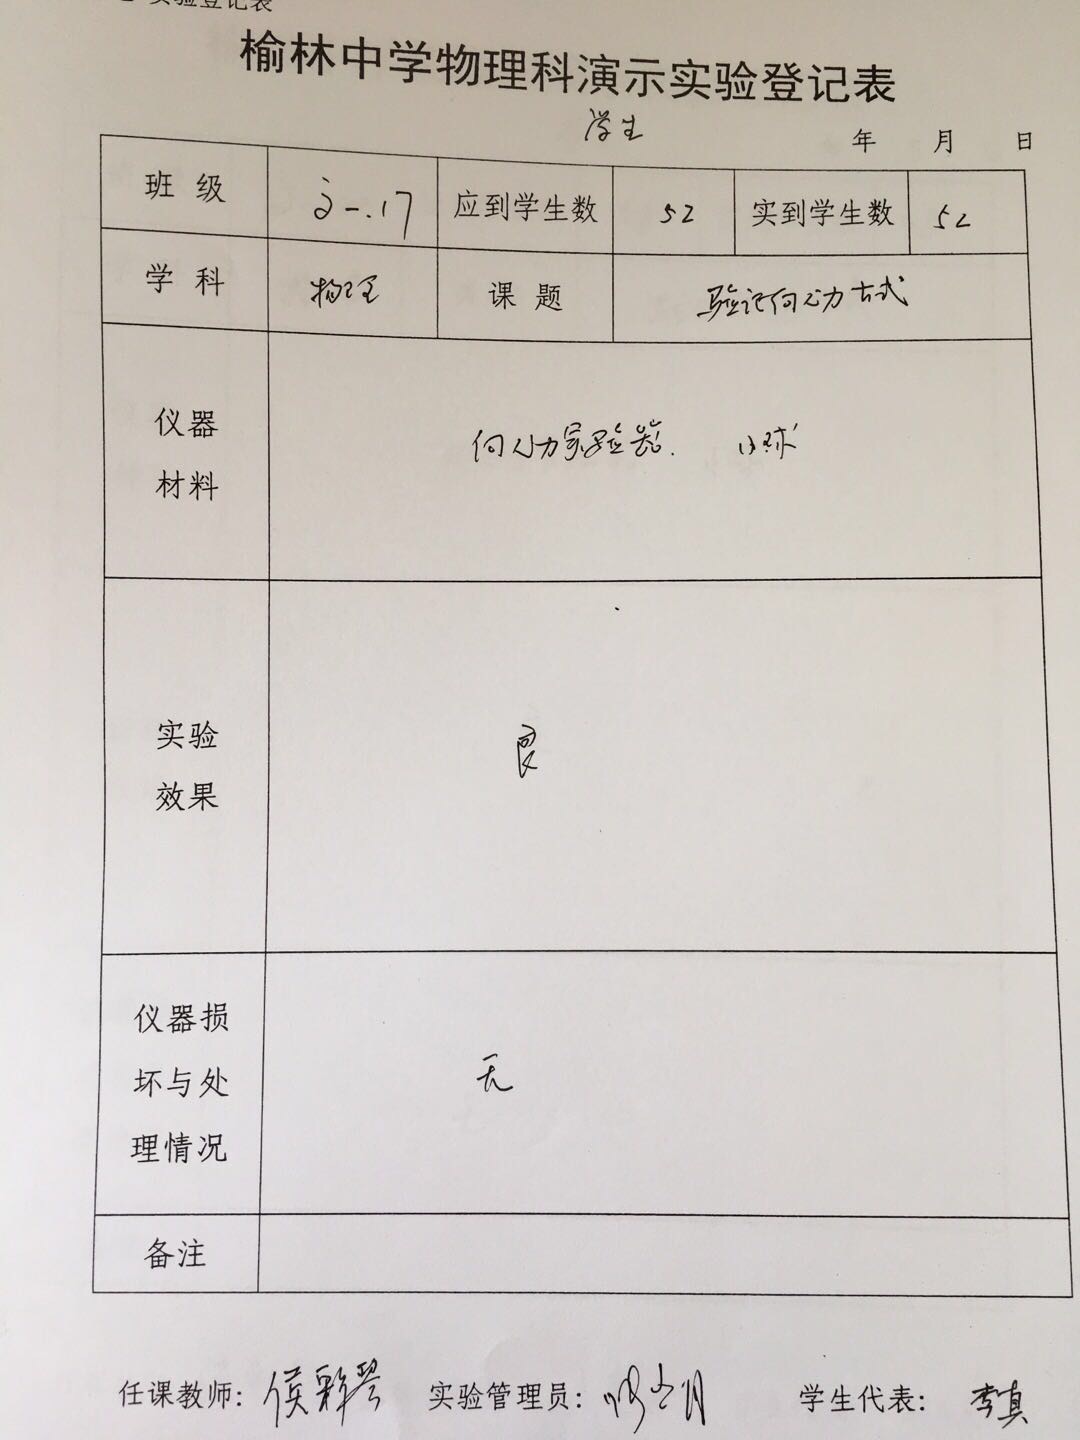 实验登记表
榆林中学物理科演示实验登记表
学生
年 月 日
班 级 高一.17 应到学生数 52 实到学生数 52
学 科 物理 课 题 验证向心力古式
仪器
材料
向心力实验器. 小球
实验
效果
良
仪器损
坏与处
理情况
无
备注
任课教师: 侯彩琴 实验管理员: 学生代表: 李真